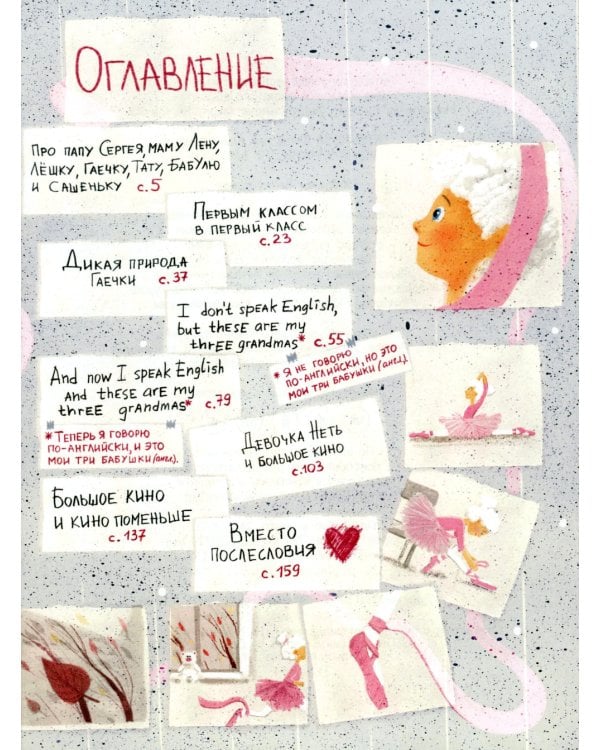 Оглавление
Про папу Сергея, маму Лену,
Лёшку, Гаечку, Тату, Бабулю
и Сашеньку с.5
Первым классом
в первый класс
с.23
Дикая природа
Гаечки с.37
I don't speak English,
but these are my
three grandmas* с.55
* Я не говорю
по-английски, но это
мои три бабушки (англ.).
And now I speak English
and these are my
three grandmas* с.79
* Теперь я говорю
по-английски, и это
мои три бабушки (англ.).
Девочка Неть
и большое кино
с.103
Большое кино
и кино поменьше
с.137
Вместо
послесловия
с.159